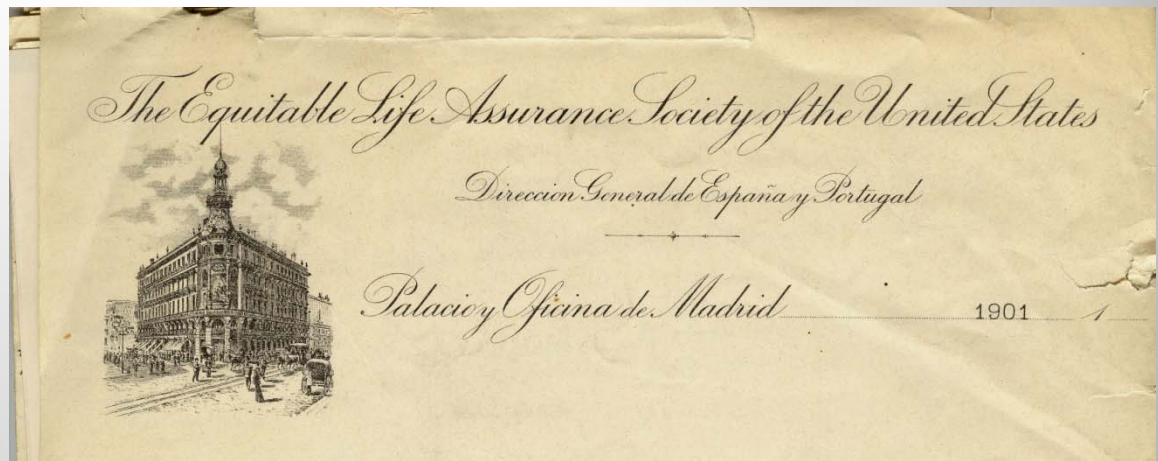 The Equitable Life Assurance Society of the United States
Direccion General de España y Portugal
Palacio y Oficina de Madrid 1901 1